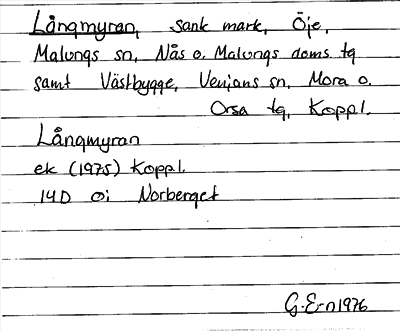 Långmyran, sank mark, Öje,
Malungs sn, Nås o. Malungs doms. tg
samt Västbygge, Venjans sn, Mora o.
Orsa tg, Koppl.
Långmyran
ek (1975) Koppl.
14D 0i Norberget
G. Ern 1976